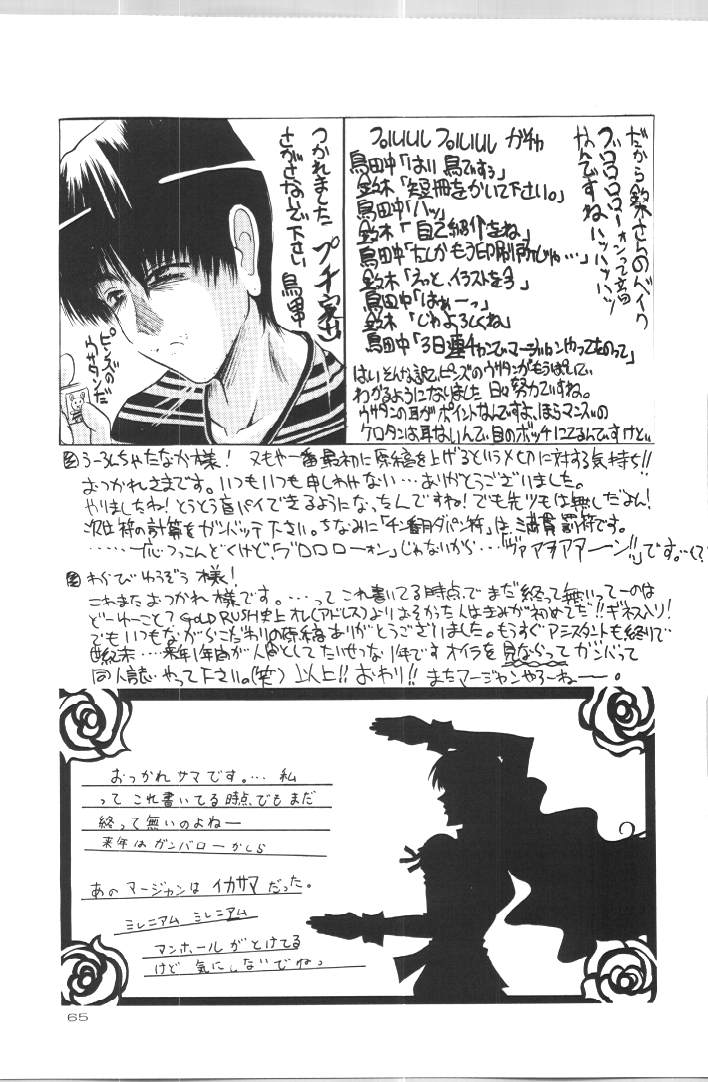 だから鈴木さんのベイの
ブロロロローォンって音田
なんですねハッハッハッ
フルルルル フルルルル ガチャ
鳥田中「はい鳥ですぅ」
鈴木「短冊をかいて下さい。」
鳥田中「ハッ」
鈴木「自己紹介をね」
鳥田中「たしかもう印刷所じゃ…」
鈴木「えっと、イラストを今」
鳥田中「はぁーっ」
鈴木「じゃよろしくね」
鳥田中「3日連チャンでマージャンやってたのって」
はいそんな訳でピンズのウサタンがもうぱいで
わかるようになりました 日々努力ですね。
ウサタンの耳がポイントなんですよ、ほらマンズの
ケロタンは耳ないんで目のボッチにてるんですけど…
つかれました プチ家出
さがさないで下さい 鳥田中
ピンズの
ウサタンだ
うーろんちゃたなか様! 又もや一番最初に原稿を上げるというメ切に対する気持ち!!
おつかれさまです。いつもいつも申しわけない…ありがとうございました。
やりましたね!とうとう盲パイできるようになったんですね!でも先ヅモは無しだよん!
次は符の計算をガンバッテ下さい。ちなみに「チン番月ダパン符」は満貫罰符です。
……ブルーつっこんどくけど、「ブロロローォン」じゃないから…「ヴァアヲアアーン!!」です。
わらびゆうぞう様!
これまたおつかれ様です。…ってこれ書いてる時点でまだ終って無いってーのは
どーゆーこと? GOLD RUSH史上オレ(アドレス)よりおそかった人はきみが初めてだ!!ギネス入り!
でもいつもながらこだわりの原稿ありがとうございました。もうすぐアシスタントも終りで
世紀末…来年1年間が人間としてたいせつな1年です オイラを見ならってガンバって
同人誌やって下さい。(笑) 以上!! おわり!! またマージャンやろーねー。
おつかれサマです。… 私
ってこれ書いてる時点でもまだ
終って無いのよねー
来年はガンバローかしら
あのマージャンはイカサマだった。
ミレニアム ミレニアム
マンホールがとけてる
けど気にしないでねっ
65